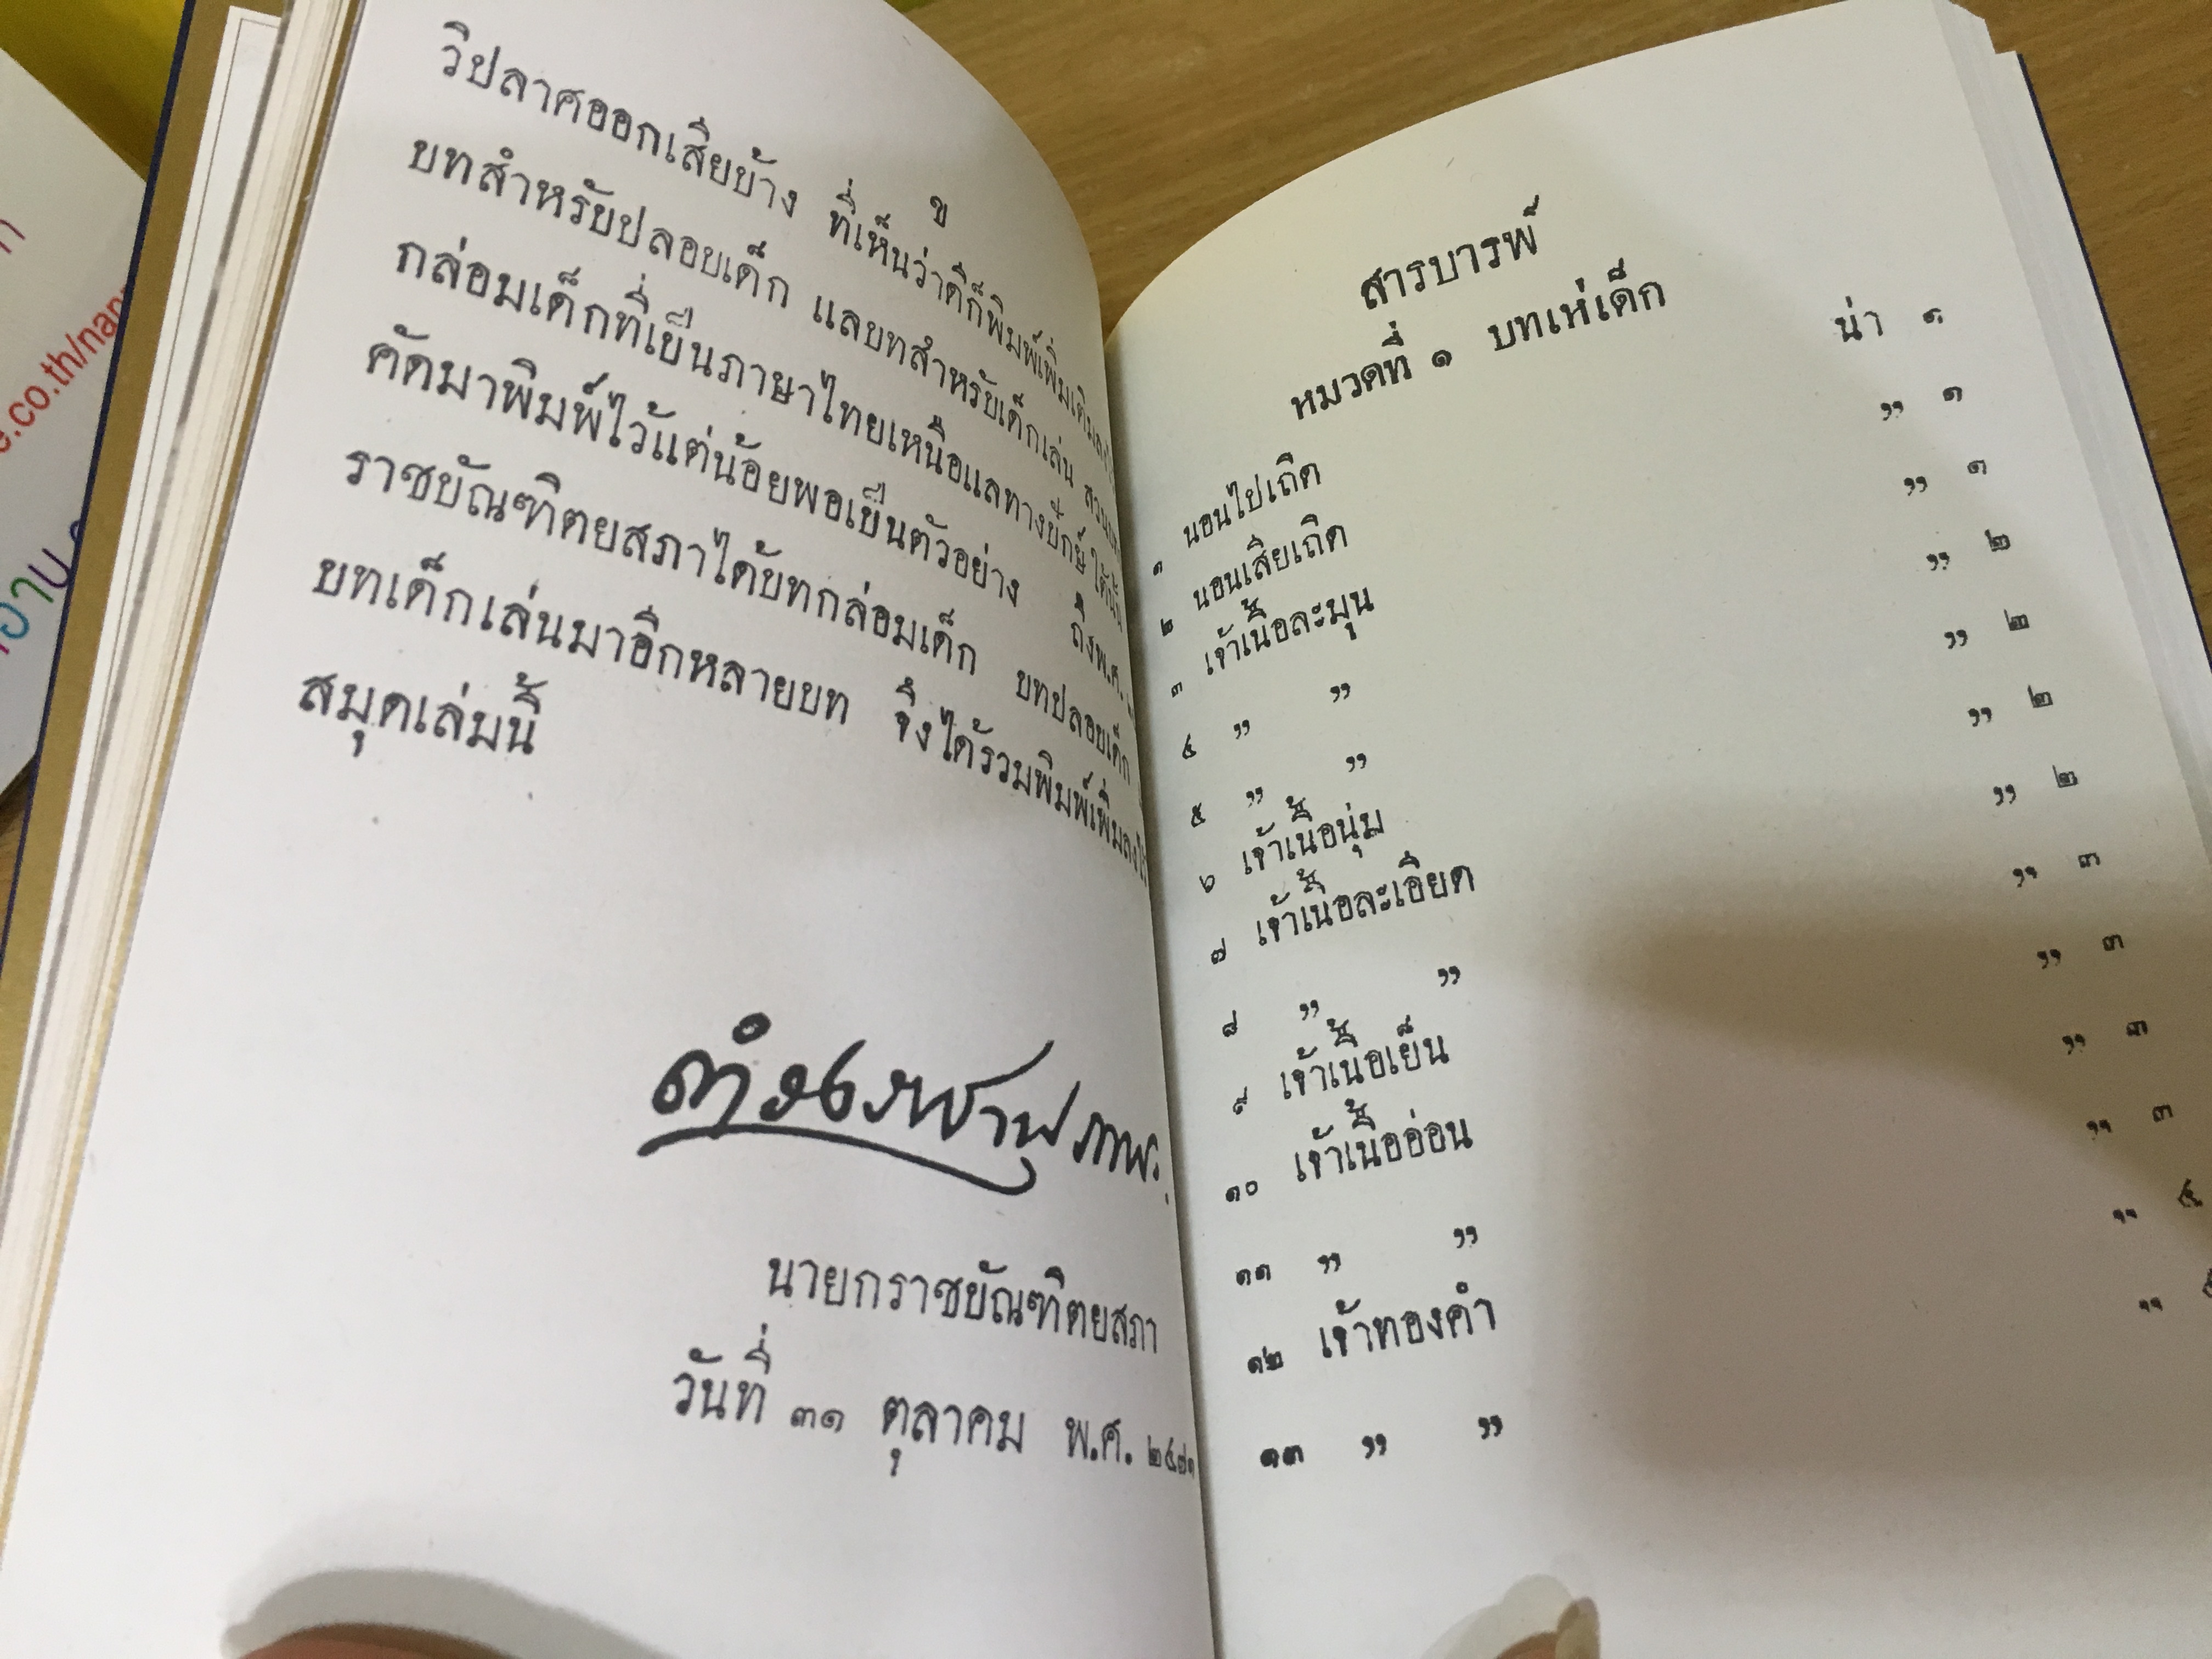 ข
วิปลาศออกเสียบ้าง ที่เห็นว่าดีก็พิมพ์เพิ่มเติมลง
บทสำหรับปลอบเด็ก แลบทสำหรับเด็กเล่น ส่วนบท
กล่อมเด็กที่เป็นภาษาไทยเหนือแลทางปักษ์ใต้นั้น
คัดมาพิมพ์ไว้แต่น้อยพอเป็นตัวอย่าง ถึงพ.ศ.
ราชบัณฑิตยสภาได้บทกล่อมเด็ก บทปลอบเด็ก
บทเด็กเล่นมาอีกหลายบท จึงได้รวมพิมพ์เพิ่มลงไว้
สมุดเล่มนี้
ดำรงราชานุภาพ
นายกราชบัณฑิตยสภา
วันที่ ๓๑ ตุลาคม พ.ศ. ๒๔๗๑
สารบารพ์
หมวดที่ ๑ บทเห่เด็ก
๑ นอนไปเถิด น่า ๑
๒ นอนเสียเถิด ,, ๑
๓ เจ้าเนื้อละมุน ,, ๑
๔ ,, ,, ,, ๒
๕ ,, ,, ,, ๒
๖ เจ้าเนื้อนุ่ม ,, ๒
๗ เจ้าเนื้อละเอียด ,, ๒
๘ ,, ,, ,, ๓
๙ เจ้าเนื้อเย็น ,, ๓
๑๐ เจ้าเนื้ออ่อน ,, ๓
๑๑ ,, ,, ,, ๓
๑๒ เจ้าทองคำ ,, ๔
๑๓ ,, ,, ,,